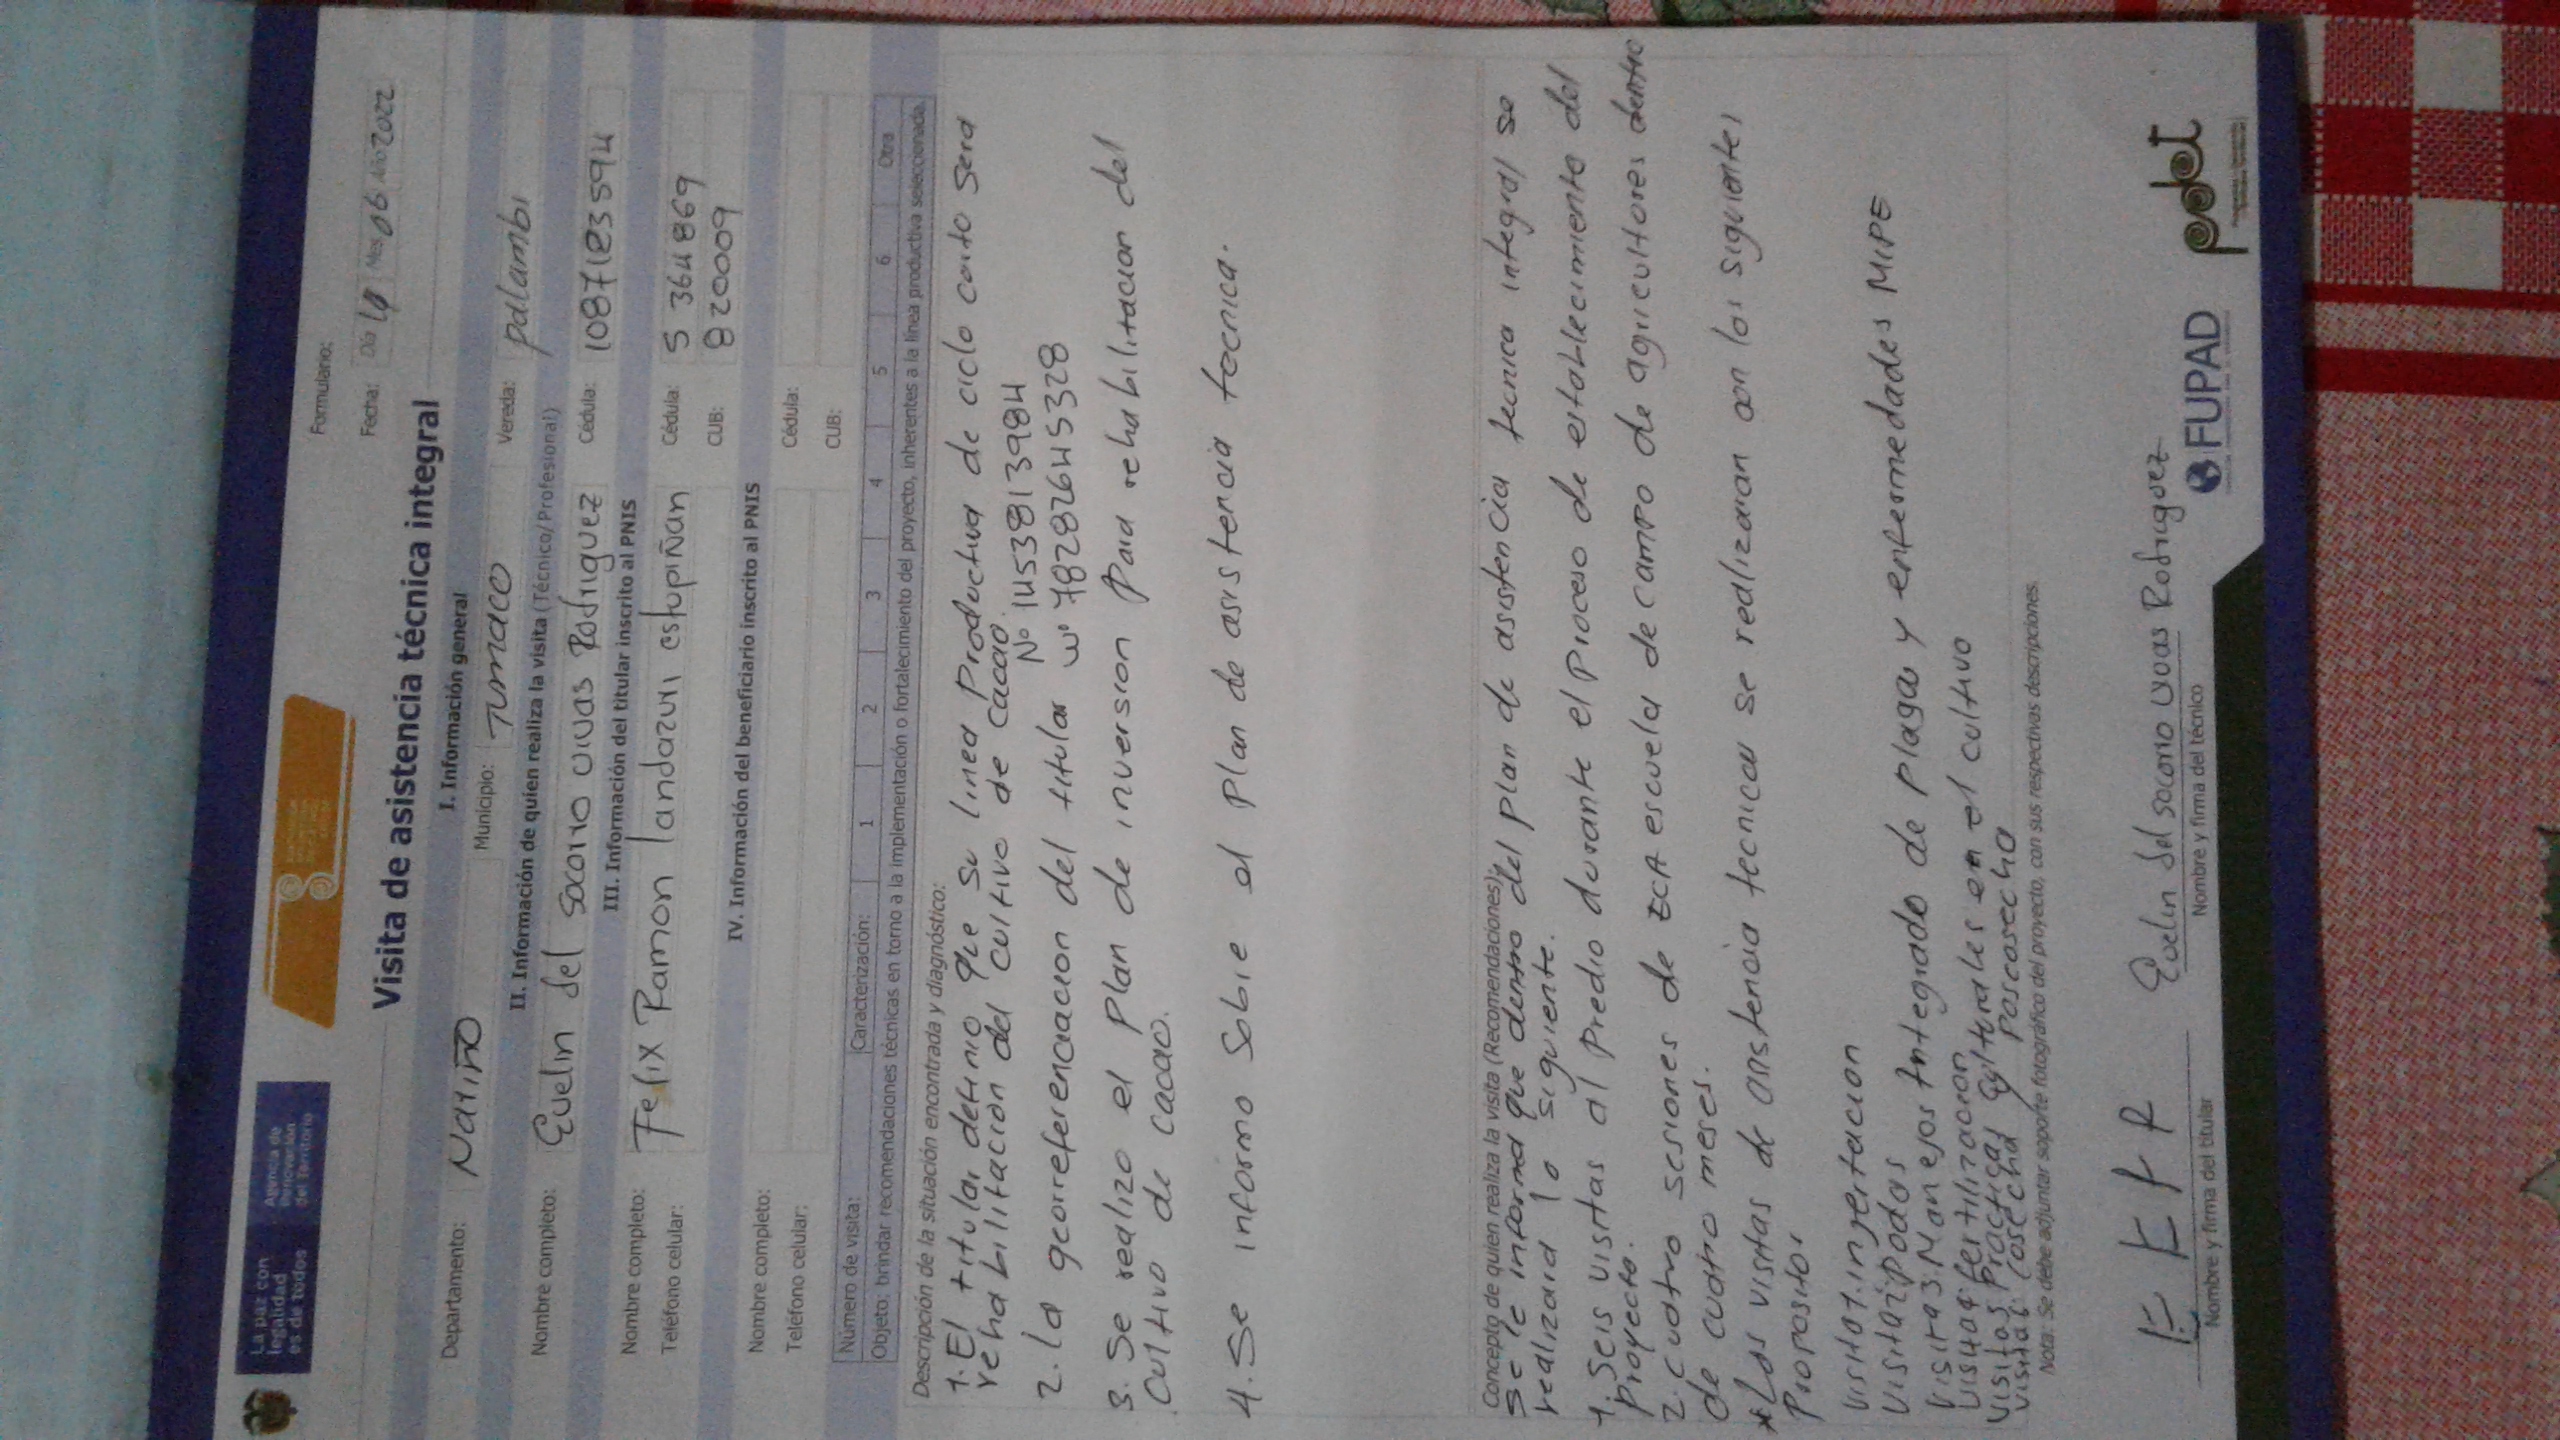 La paz con
legalidad
es de todos
Agencia de
Renovación
del Territorio
Formulario:
Fecha: Día Mes 06 Año 2022
Visita de asistencia técnica integral
I. Información general
Departamento: Nariño Municipio: Tumaco Vereda: palambi
II. Información de quien realiza la visita (Técnico/Profesional)
Nombre completo: Evelin del socorro vivas Rodriguez Cédula: 1087183594
III. Información del titular inscrito al PNIS
Nombre completo: Felix Ramon landazuri estupiñan Cédula: 5 364 869
Teléfono celular: CUB: 820009
IV. Información del beneficiario inscrito al PNIS
Nombre completo: Cédula:
Teléfono celular: CUB:
Número de visita: Caracterización: 1 2 3 4 5 6 Otra
Objeto: brindar recomendaciones técnicas en torno a la implementación o fortalecimiento del proyecto, inherentes a la línea productiva seleccionada.
Descripción de la situación encontrada y diagnóstico:
1. El titular definio que su linea Productiva de ciclo corto sera
rehabilitación del cultivo de cacao.
N° 1453813984
2. la georreferenciacion del titular w° 78282645328
3. Se realizo el Plan de inversion Para rehabilitacion del
cultivo de cacao.
4. Se informo sobre el plan de asistencia tecnica.
Concepto de quien realiza la visita (Recomendaciones):
Se le informa que dentro del plan de asistencia tecnica integral se
realizara lo siguiente.
1. Seis visitas al Predio durante el Proceso de establecimiento del
proyecto.
2. cuatro sesiones de ECA escuela de campo de agricultores dentro
de cuatro meses.
* Las visitas de asistencia tecnicas se realizaran con los siguientes
Propositos
Visita 1. injertacion
Visita 2: Podas
Visita 3: Manejos Integrado de Plagas y enfermedades MIPE
Visita 4 fertilizacion
Visita 5 Practicas culturales en el cultivo
visita 6: cosecha y Poscosecha
Nota: Se debe adjuntar soporte fotográfico del proyecto, con sus respectivas descripciones.
Evelin del socorro vivas Rodriguez
Nombre y firma del titular Nombre y firma del técnico
FUPAD pdet